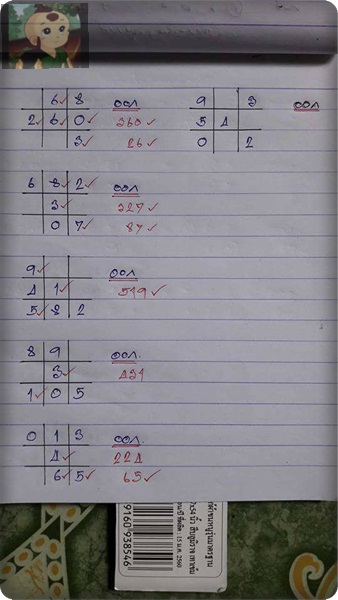 6✓ 8 ออก 9 3 ออก
2✓ 6✓ 0✓ 260✓ 5 4
3✓ 26✓ 0 2
6 8✓ 2✓ ออก
3✓ 327✓
0 7✓ 87✓
9✓ ออก
4 1✓ 519✓
5✓ 8 2
8 9 ออก.
3✓ 431
1✓ 0 5
0 1 3 ออก.
4✓ 224
6✓ 5✓ 65✓
15 ม.ค. 2560
9160 938546